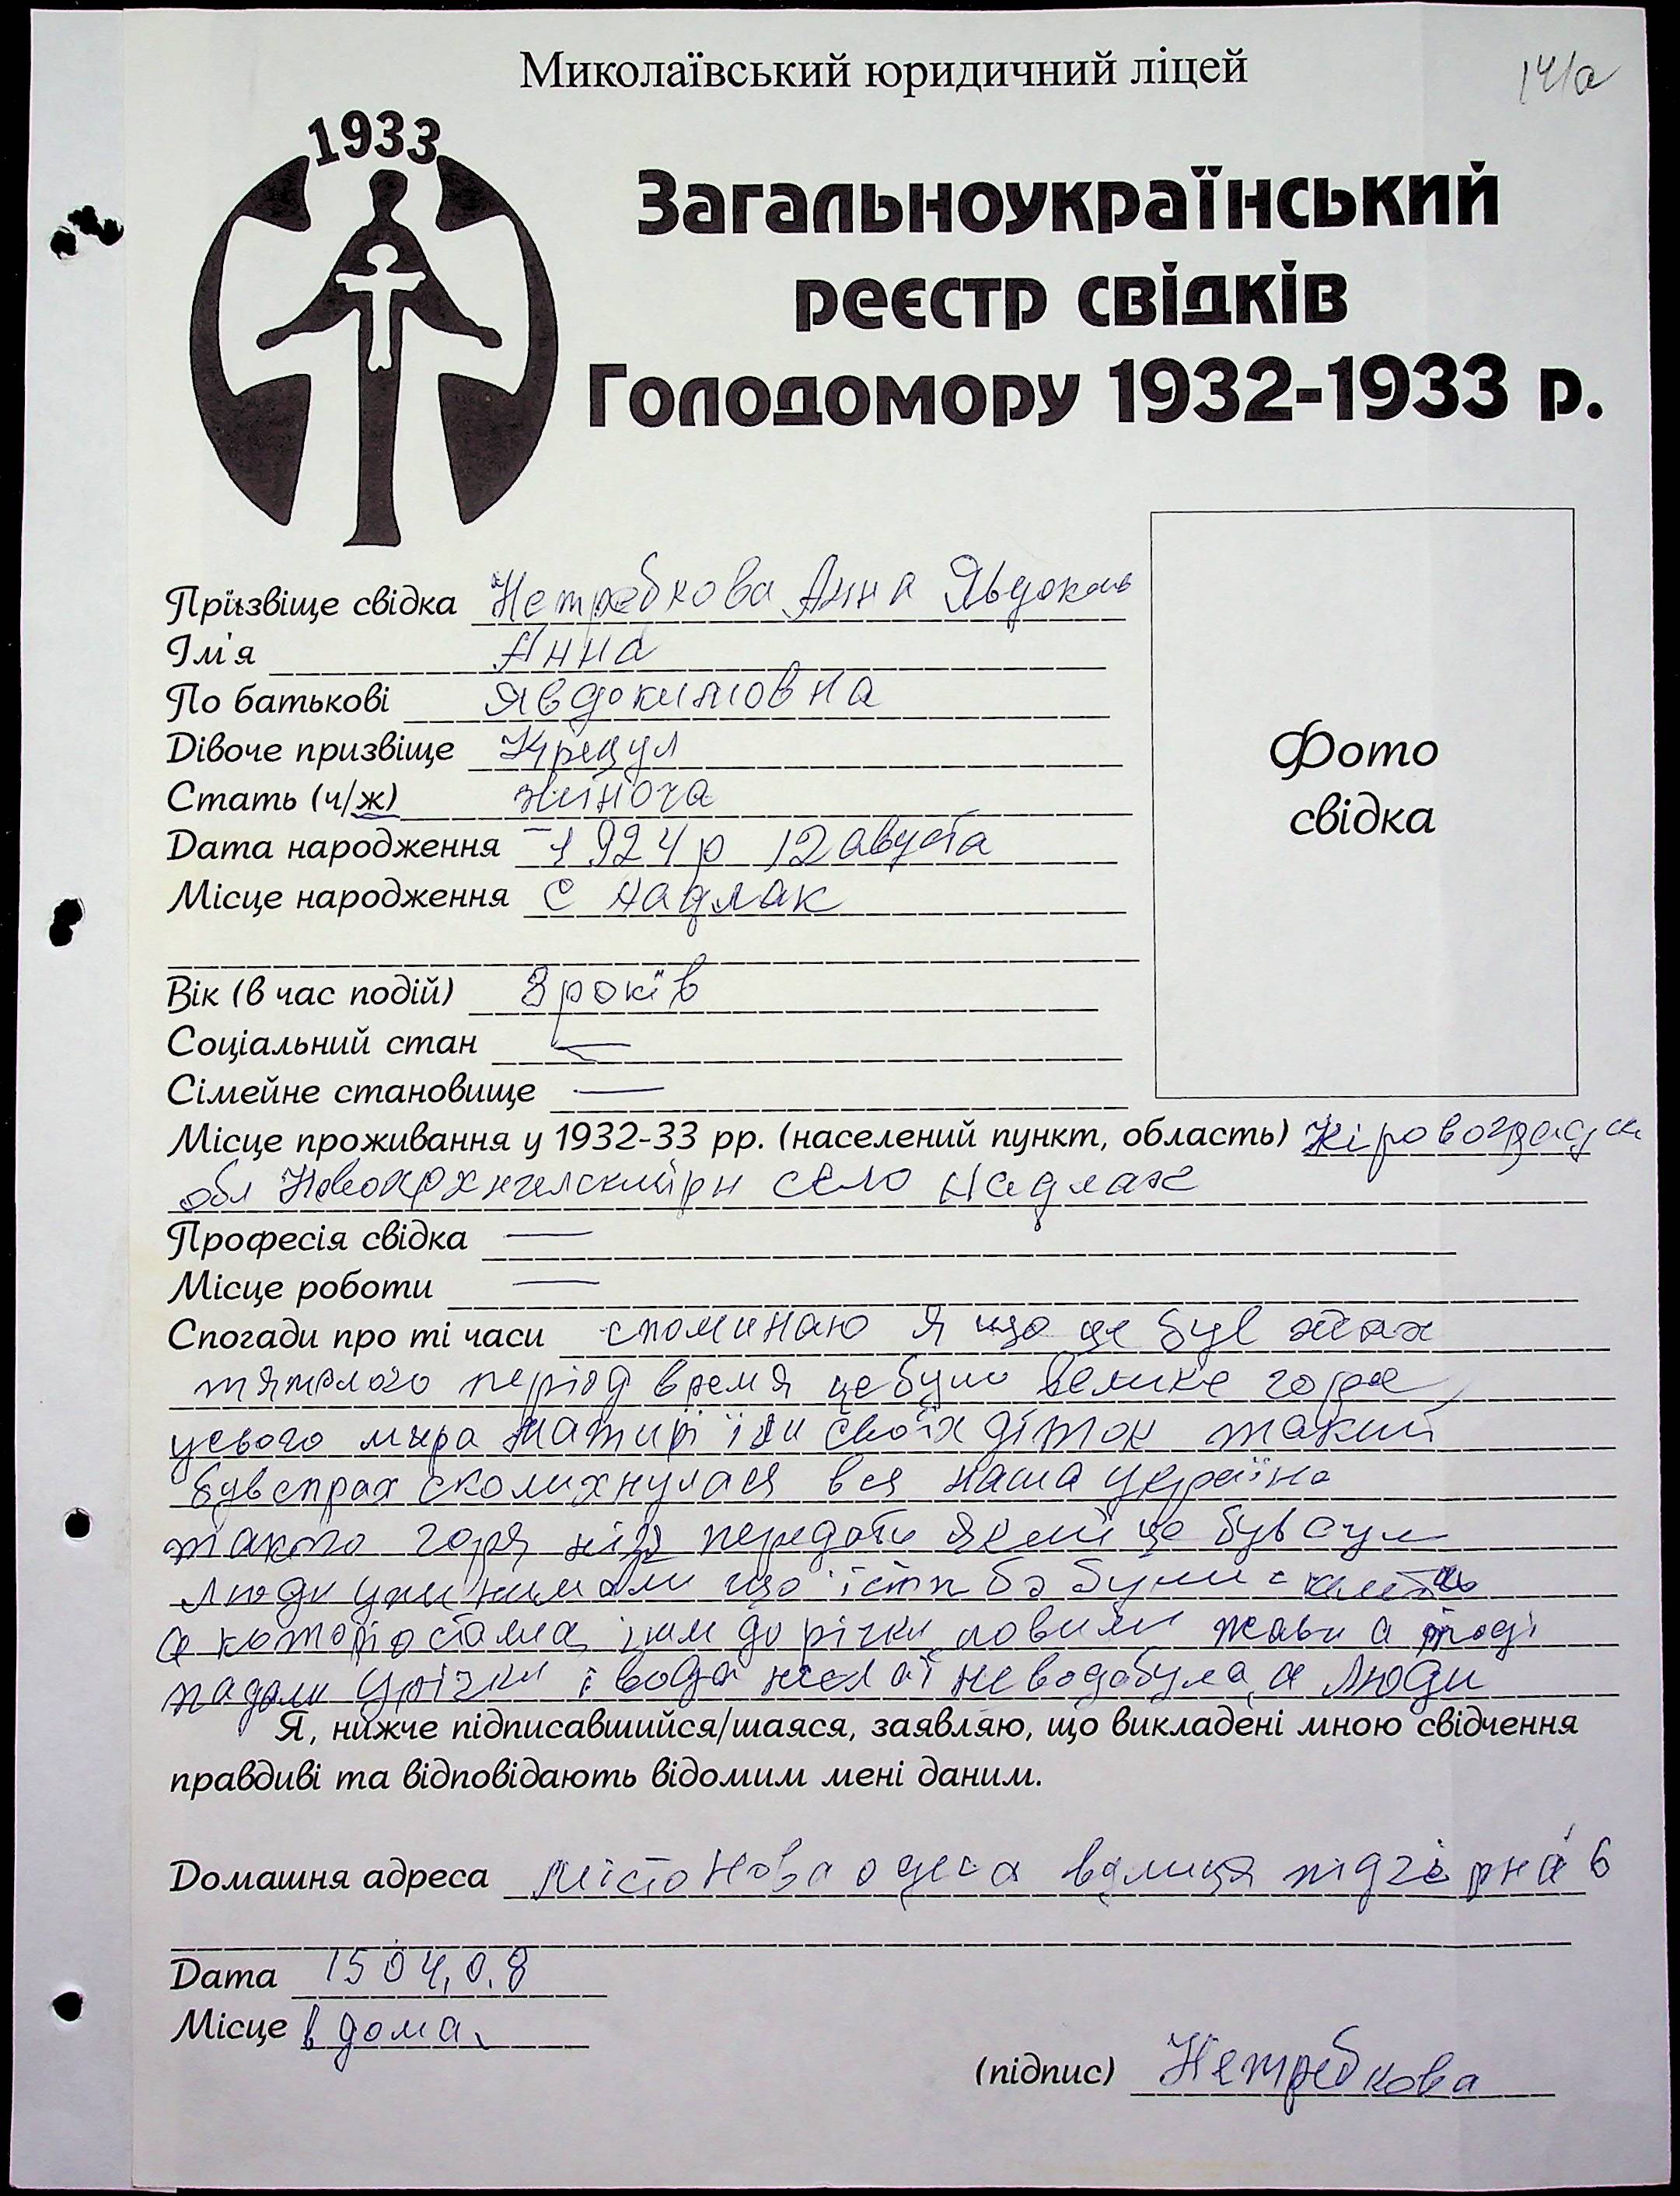 Миколаївський юридичний ліцей
141а
1933
Загальноукраїнський
реєстр свідків
Голодомору 1932-1933 р.
Прізвіще свідка Нетребкова Анна Явдоким
Ім'я Анна
По батькові Явдокимовна
Дівоче призвіще Крецул
Стать (ч/ж) жіноча
Дата народження 1924 р 12 августа
Місце народження с надлак
Вік (в час подій) 8 років
Соціальний стан —
Сімейне становище —
Місце проживання у 1932-33 рр. (населений пункт, область) Кіровоградск
обл село надлак
Професія свідка —
Місце роботи —
Спогади про ті часи споминаю я що це був
період время це було велике горе
усього мира їли своїх діток такий
був страх сколихнулася вся наша україна
такого горя передати який це був сум
люди що їсти бо були
а до річки ловили жаби а тоді
падали у річки і вода не вода була а люди
Я, нижче підписавшийся/шаяся, заявляю, що викладені мною свідчення
правдиві та відповідають відомим мені даним.
Фото
свідка
Домашня адреса місто нова одеса вулиця підгірна 6
Дата 15 04, 0.8
Місце в дома
(підпис) Нетребкова